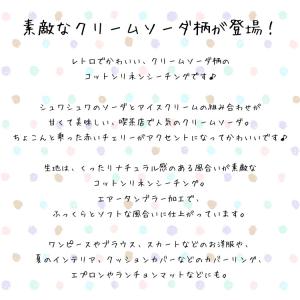 素敵なクリームソーダ柄が登場！
レトロでかわいい、クリームソーダ柄の
コットンリネンシーチングです♪
シュワシュワのソーダとアイスクリームの組み合わせが
甘くて美味しい、喫茶店で人気のクリームソーダ。
ちょこんと乗った赤いチェリーがアクセントになってかわいいです♪
生地は、くったりナチュラル感のある風合いが素敵な
コットンリネンシーチング。
エアータンブラー加工で、
ふっくらとソフトな風合いに仕上がっています。
ワンピースやブラウス、スカートなどのお洋服や、
夏のインテリア、クッションカバーなどのカバーリング、
エプロンやランチョンマットなどにも。